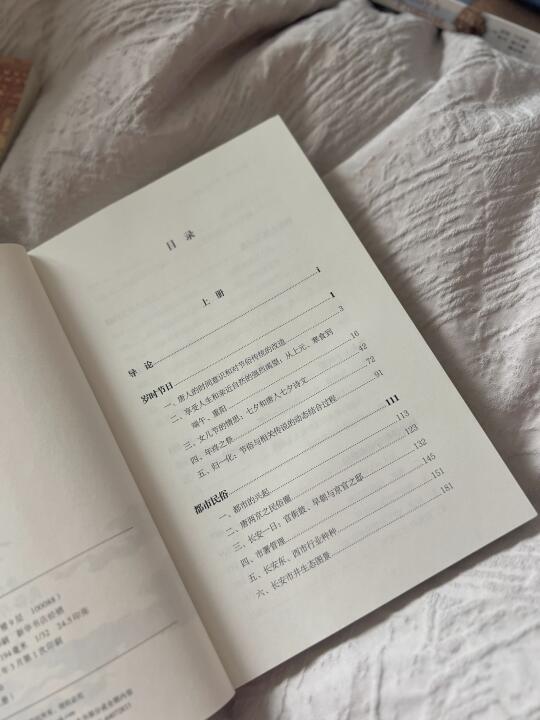 目 录
上 册
导 论 i
岁时节日 1
一、唐人的时间意识和对节俗传统的改造 3
二、享受人生和亲近自然的强烈渴望：从上元、寒食到
端午、重阳 16
三、女儿节的情思：七夕和唐人七夕诗文 42
四、年终之祭 72
五、归一化：节俗与相关传说的动态结合过程 91
都市民俗 111
一、都市的兴起 113
二、唐两京之民俗圈 123
三、长安一日：官街鼓、早朝与京官之邸 132
四、市署管理 145
五、长安东、西市行业种种 151
六、长安市井生态图景 181
100088）
新华书店经销
1/32 24.5印张
年3月第1次印刷